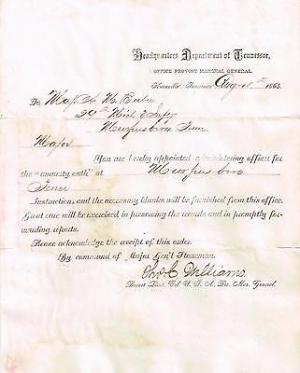 Headquarters Department of Tennessee,
OFFICE PROVOST MARSHAL GENERAL,
Tennessee, Aug 186
To Maj.
Murfreesboro Tenn
Major
You are hereby appointed administering officer for
the "amnesty oath" at Murfreesboro
Tenn
Instruction, and the necessary blanks will be furnished from this office.
Great care will be exercised in preserving the records and in promptly for-
warding reports.
Please acknowledge the receipt of this order.
By command of Major Gen'l Stoneman.
Williams
Brevt Lieut. Col U. S. A. Genral.